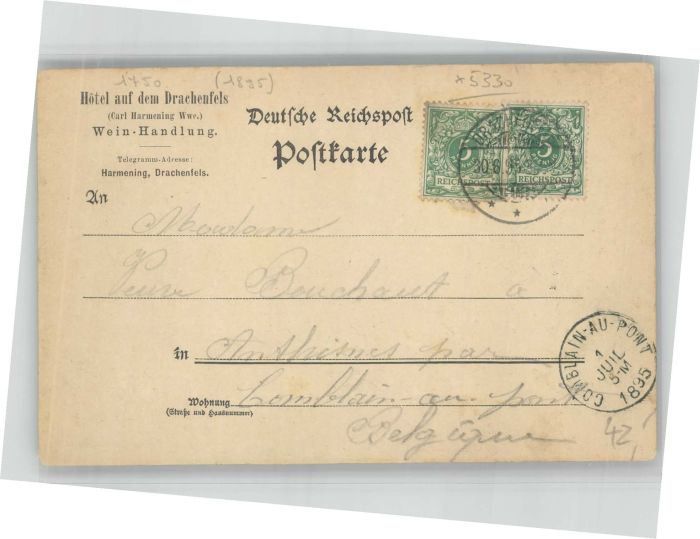 1750 (1895) *5330
Hôtel auf dem Drachenfels
(Carl Harmening Wwe.)
Wein-Handlung.
Telegramm-Adresse:
Harmening, Drachenfels.
Deutsche Reichspost
Postkarte
5 5
REICHSPOST REICHSPOST
30.6.95
An
Madame
Veuve Bouchaut à
in Anthisnes par
Wohnung Comblain-au-pont
(Straße und Hausnummer)
Belgique
COMBLAIN-AU-PONT
1
JUIL
5-M
1895
42